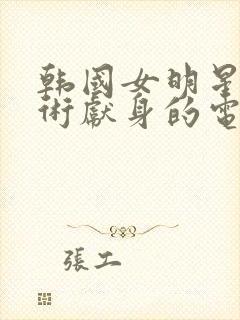 韩國女明星
術獻身的電
張工